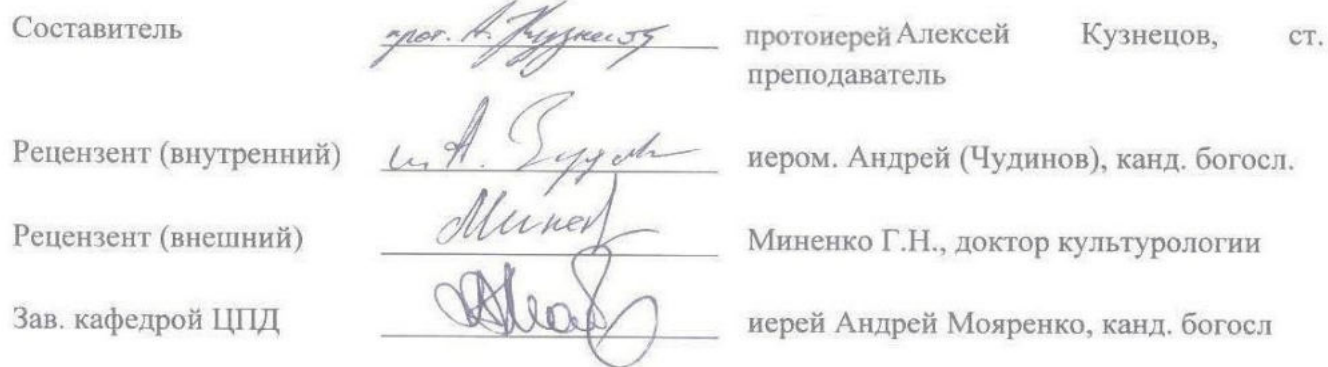 Составитель прот. А. Кузнецов протоиерей Алексей Кузнецов, ст.
преподаватель
Рецензент (внутренний) иером. Андрей (Чудинов), канд. богосл.
Рецензент (внешний) Миненко Г.Н., доктор культурологии
Зав. кафедрой ЦПД иерей Андрей Мояренко, канд. богосл